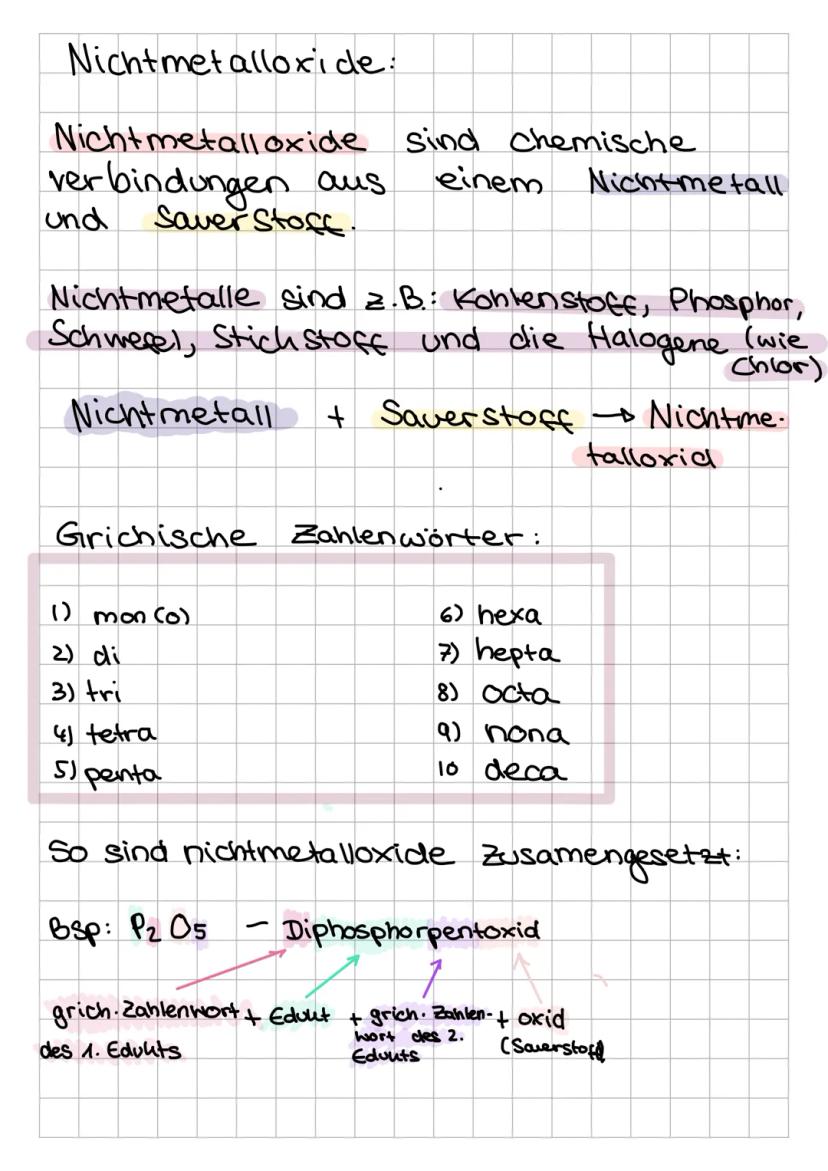 Nichtmetalloxide:
Nichtmetalloxide sind chemische
verbindungen aus einem Nichtmetall
und Sauerstoff.
Nichtmetalle sind z.B.: Kohlenstoff, Phosphor,
Schwefel, Stickstoff und die Halogene (wie
Chlor)
Nichtmetall + Sauerstoff → Nichtme-
talloxid
Grichische Zahlenwörter:
1) mon(o)
2) di
3) tri
4) tetra
5) penta
6) hexa
7) hepta
8) octa
9) nona
10 deca
So sind nichtmetalloxide zusamengesetzt:
Bsp: P2 O5 – Diphosphorpentoxid
grich. Zahlenwort + Edukt + grich. Zahlen- + oxid
des 1. Edukts wort des 2. (Sauerstoff
Edukts